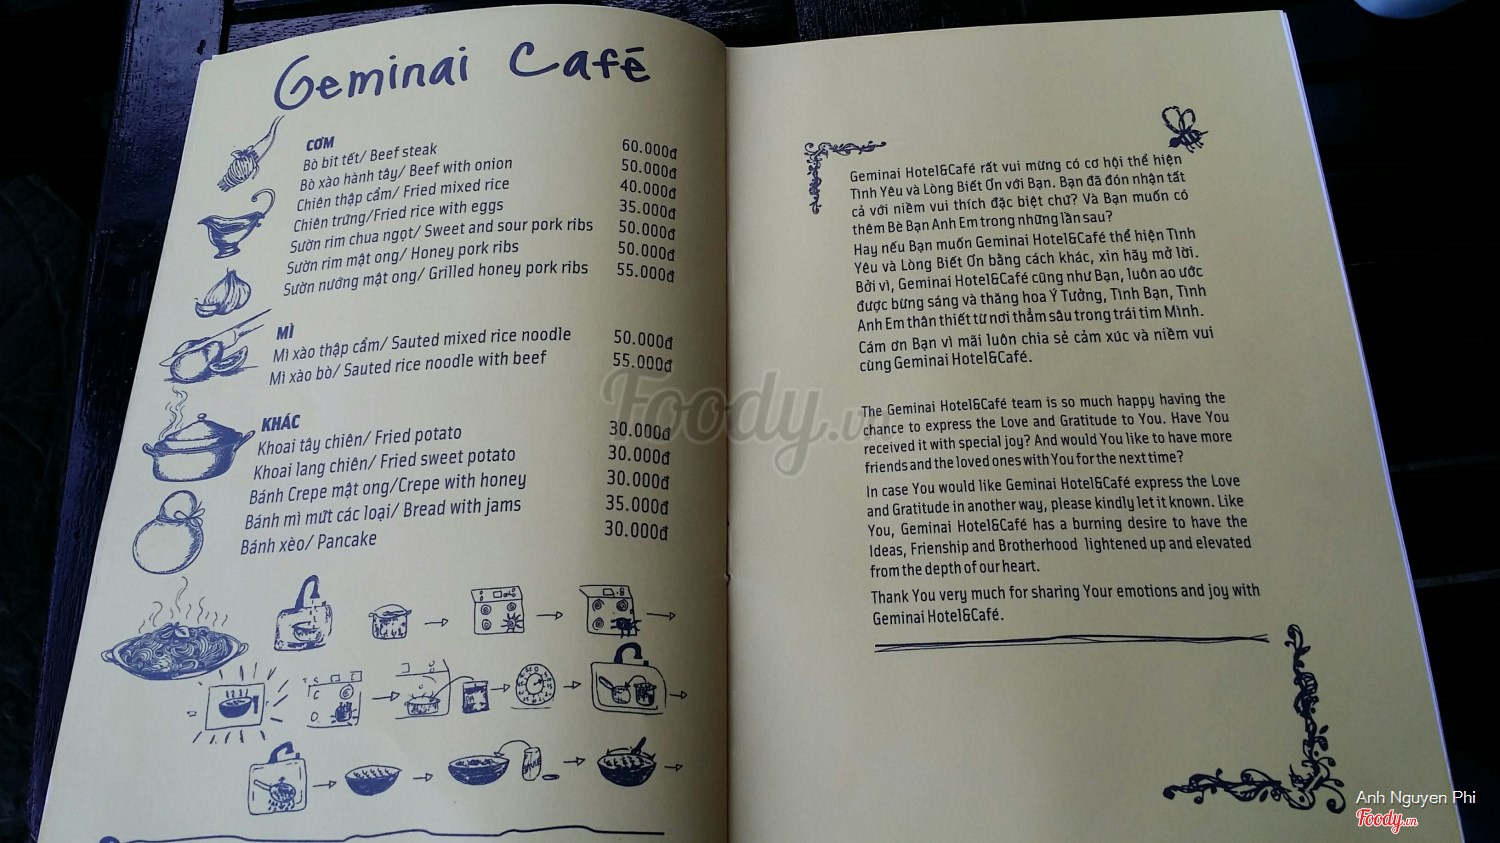 Geminai Café
CƠM
Bò bit tết/ Beef steak 60.000đ
Bò xào hành tây/ Beef with onion 50.000đ
Chiên thập cẩm/ Fried mixed rice 40.000đ
Chiên trứng/Fried rice with eggs 35.000đ
Sườn rim chua ngọt/ Sweet and sour pork ribs 50.000đ
Sườn rim mật ong/ Honey pork ribs 50.000đ
Sườn nướng mật ong/ Grilled honey pork ribs 55.000đ
MÌ
Mì xào thập cẩm/ Sauted mixed rice noodle 50.000đ
Mì xào bò/ Sauted rice noodle with beef 55.000đ
KHÁC
Khoai tây chiên/ Fried potato 30.000đ
Khoai lang chiên/ Fried sweet potato 30.000đ
Bánh Crepe mật ong/Crepe with honey 30.000đ
Bánh mì mứt các loại/ Bread with jams 35.000đ
Bánh xèo/ Pancake 30.000đ
Geminai Hotel&Café rất vui mừng có cơ hội thể hiện
Tình Yêu và Lòng Biết Ơn với Bạn. Bạn đã đón nhận tất
cả với niềm vui thích đặc biệt chứ? Và Bạn muốn có
thêm Bè Bạn Anh Em trong những lần sau?
Hay nếu Bạn muốn Geminai Hotel&Café thể hiện Tình
Yêu và Lòng Biết Ơn bằng cách khác, xin hãy mở lời.
Bởi vì, Geminai Hotel&Café cũng như Bạn, luôn ao ước
được bừng sáng và thăng hoa Ý Tưởng, Tình Bạn, Tình
Anh Em thân thiết từ nơi thẳm sâu trong trái tim Mình.
Cám ơn Bạn vì mãi luôn chia sẻ cảm xúc và niềm vui
cùng Geminai Hotel&Café.
The Geminai Hotel&Café team is so much happy having the
chance to express the Love and Gratitude to You. Have You
received it with special joy? And would You like to have more
friends and the loved ones with You for the next time?
In case You would like Geminai Hotel&Café express the Love
and Gratitude in another way, please kindly let it known. Like
You, Geminai Hotel&Café has a burning desire to have the
Ideas, Frienship and Brotherhood lightened up and elevated
from the depth of our heart.
Thank You very much for sharing Your emotions and joy with
Geminai Hotel&Café.
Foody.vn
Anh Nguyen Phi
Foody.vn